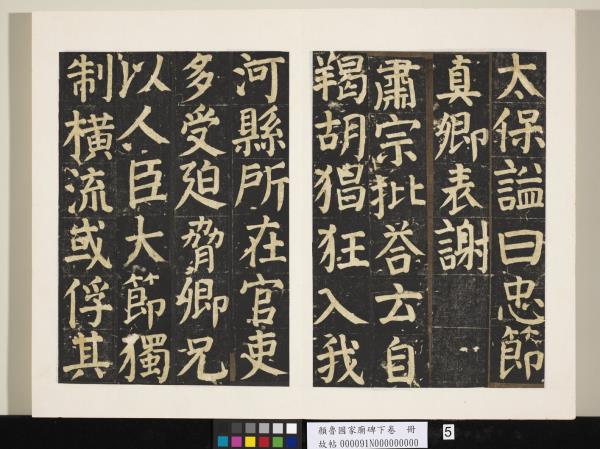 太保謚曰忠節
真卿表謝
肅宗批荅云自
羯胡猖狂入我
河縣所在官吏
多受迫脅卿兄
以人臣大節獨
制橫流或俘其
顏魯國家廟碑下卷 冊
故帖 000091N000000000
5